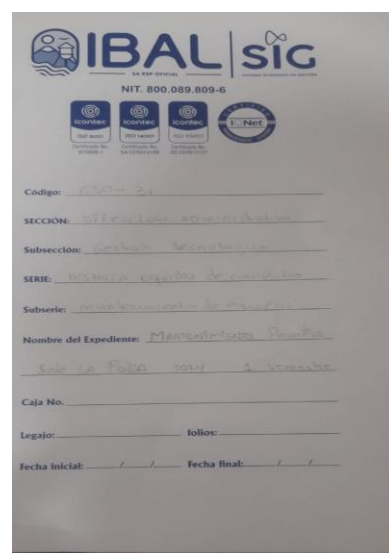 IBAL SIG
SA ESP OFICIAL
NIT. 800.089.809-6
icontec icontec icontec IQNet
ISO 9001 ISO 14001
Código:
SECCIÓN: Dirección administrativa
Subsección: Gestión tecnológica
SERIE: de computo
Subserie: mantenimiento de equipos
Nombre del Expediente: MANTENIMIENTO
Sede LA POLA 2024 1 semestre
Caja No.
Legajo: folios:
Fecha inicial: / / Fecha final: / /